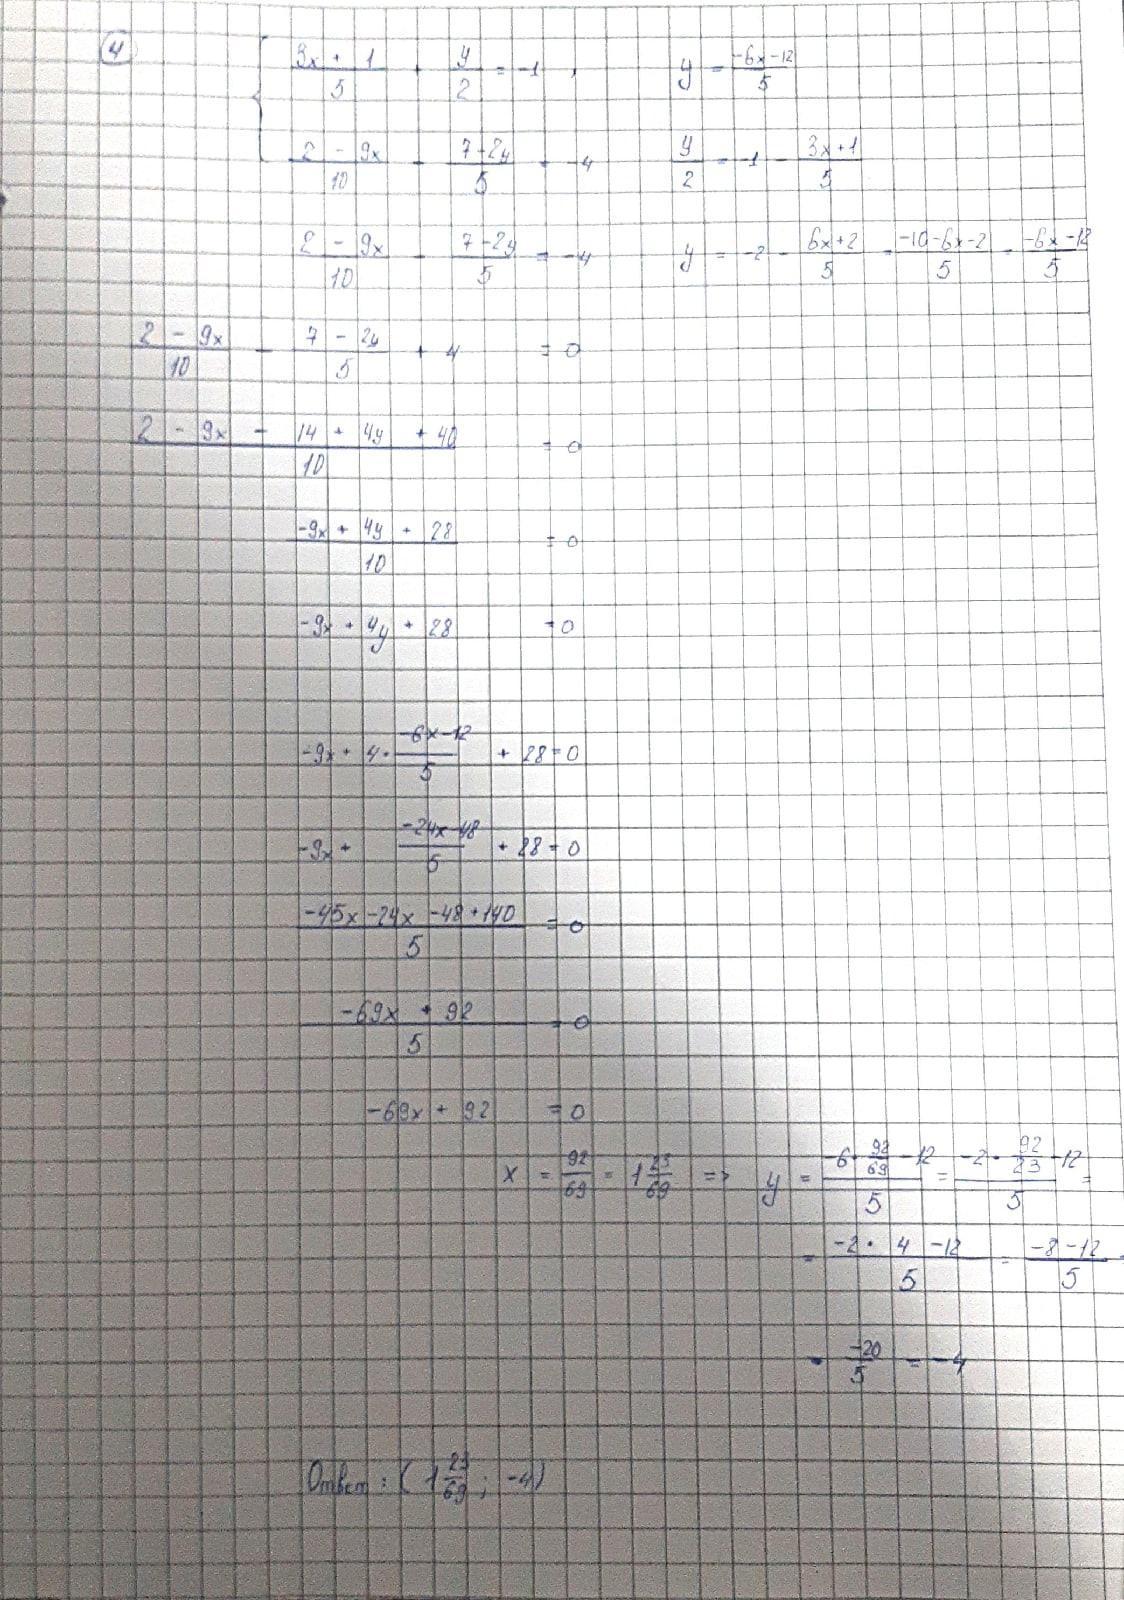 4
(3x + 1)/5 + y/2 = -1 , y = (-6x-12)/5
(2 - 9x)/10 - (7-2y)/5 = -4 y/2 = -1 - (3x+1)/5
(2 - 9x)/10 - (7-2y)/5 = -4 y = -2 - (6x+2)/5 = (-10-6x-2)/5 = (-6x-12)/5
(2 - 9x)/10 - (7 - 2y)/5 + 4 = 0
(2 - 9x - 14 + 4y + 40)/10 = 0
(-9x + 4y + 28)/10 = 0
-9x + 4y + 28 = 0
-9x + 4 · (-6x-12)/5 + 28 = 0
-9x + (-24x-48)/5 + 28 = 0
(-45x -24x -48 +140)/5 = 0
(-69x + 92)/5 = 0
-69x + 92 = 0
x = 92/69 = 1 23/69 => y = (-6 · 92/69 - 12)/5 = (-2 · 92/23 -12)/5 =
= (-2 · 4 -12)/5 = (-8 -12)/5 =
= -20/5 = -4
Ответ : ( 1 23/69 ; -4)